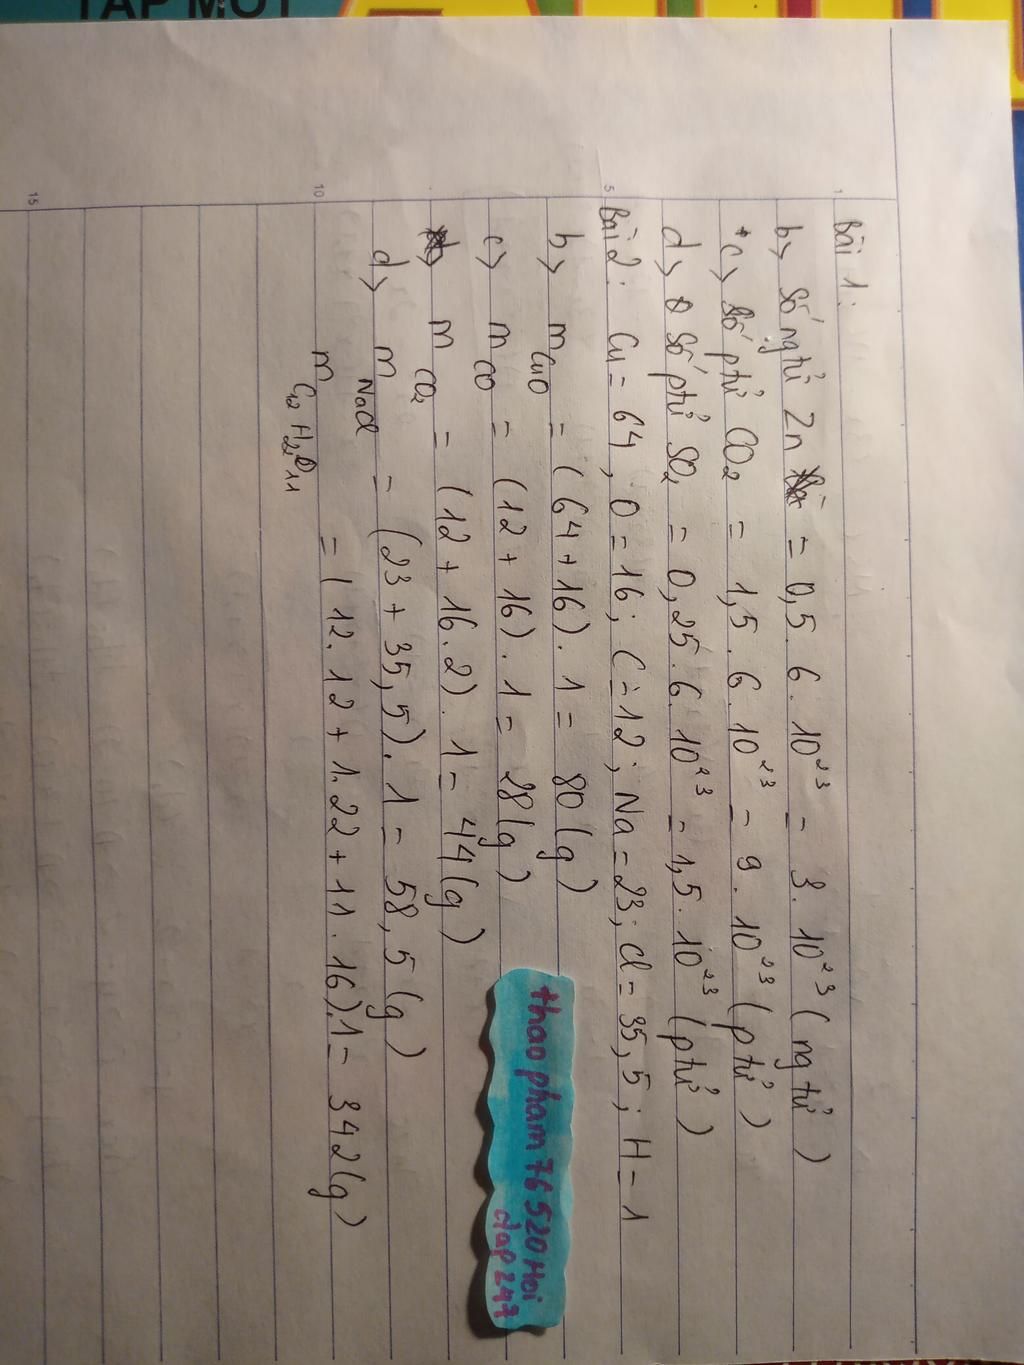 TẬP MỘT
Bài 1:
b> Số ngtử Zn = 0,5 . 6 . 10²³ = 3 . 10²³ (ngtử)
c> Số ptử CO₂ = 1,5 . 6 . 10²³ = 9 . 10²³ (ptử)
d> Số ptử SO₂ = 0,25 . 6 . 10²³ = 1,5 . 10²³ (ptử)
Bài 2: Cu = 64, O = 16; C = 12; Na = 23; Cl = 35,5; H = 1
b> m CuO = (64 + 16) . 1 = 80 (g)
c> m CO = (12 + 16) . 1 = 28 (g)
m CO₂ = (12 + 16 . 2) . 1 = 44 (g)
d> m NaCl = (23 + 35,5) . 1 = 58,5 (g)
m C₁₂H₂₂O₁₁ = (12 . 12 + 1 . 22 + 11 . 16) . 1 = 342 (g)
thao pham 76 520 Hoi
dap 247
1
5
10
15